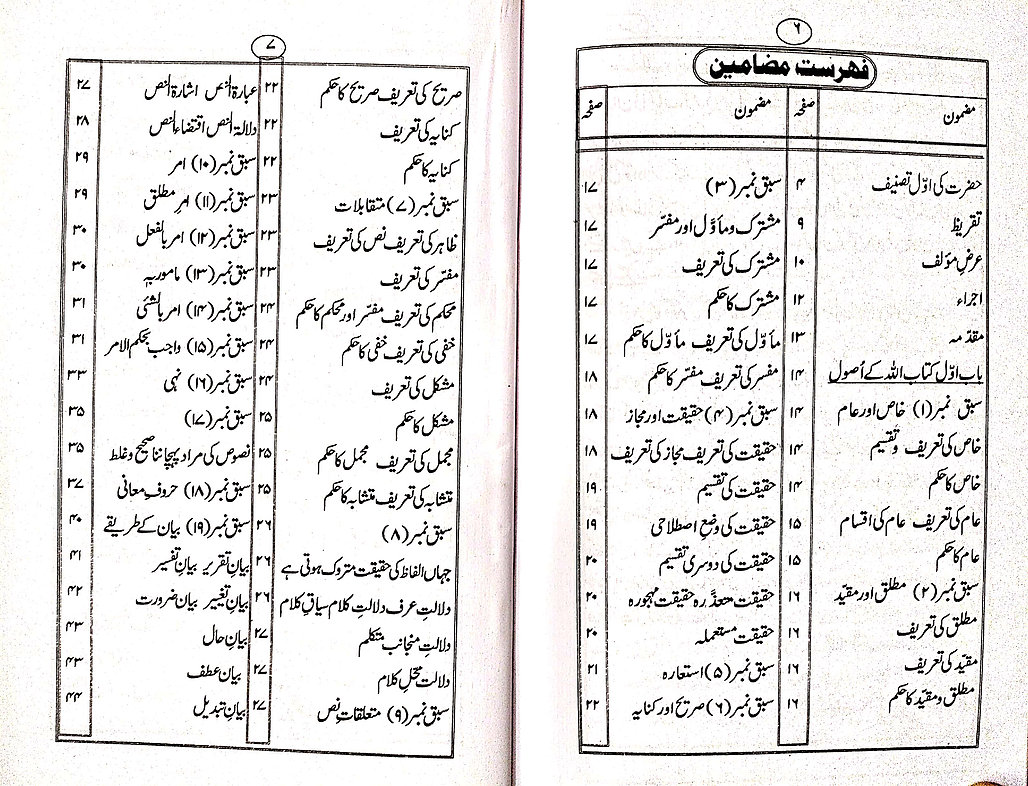 ۶
فہرست مضامین
مضمون صفحہ مضمون صفحہ
حضرت کی اوّل تصنیف ۴
تقریظ ۹
عرضِ مؤلف ۱۰
اجراء ۱۲
مقدّمہ ۱۳
باب اوّل کتاب اللہ کے اُصول ۱۴
سبق نمبر (۱) خاص اور عام ۱۴
خاص کی تعریف وتقسیم ۱۴
خاص کا حکم ۱۴
عام کی تعریف عام کی اقسام ۱۵
عام کا حکم ۱۵
سبق نمبر (۲) مطلق اور مقیّد ۱۶
مطلق کی تعریف ۱۶
مقیّد کی تعریف ۱۶
مطلق ومقیّد کا حکم ۱۶
سبق نمبر (۳) ۱۷
مشترک ومأوّل اور مفسّر ۱۷
مشترک کی تعریف ۱۷
مشترک کا حکم ۱۷
مأوّل کی تعریف مأوّل کا حکم ۱۷
مفسر کی تعریف مفسّر کا حکم ۱۸
سبق نمبر (۴) حقیقت اور مجاز ۱۸
حقیقت کی تعریف مجاز کی تعریف ۱۸
حقیقت کی تقسیم ۱۹
حقیقت کی وضعِ اصطلاحی ۱۹
حقیقت کی دوسری تقسیم ۲۰
حقیقت متعذّرہ حقیقت مہجورہ ۲۰
حقیقت مستعملہ ۲۰
سبق نمبر (۵) استعارہ ۲۱
سبق نمبر (۶) صریح اور کنایہ ۲۲
۷
صریح کی تعریف صریح کا حکم ۲۲
کنایہ کی تعریف ۲۲
کنایہ کا حکم ۲۲
سبق نمبر (۷) متقابلات ۲۳
ظاہر کی تعریف نص کی تعریف ۲۳
مفسّر کی تعریف ۲۳
محکم کی تعریف مفسّر اور محکم کا حکم ۲۴
خفی کی تعریف خفی کا حکم ۲۴
مشکل کی تعریف ۲۴
مشکل کا حکم ۲۵
مجمل کی تعریف مجمل کا حکم ۲۵
متشابہ کی تعریف متشابہ کا حکم ۲۵
سبق نمبر (۸) ۲۶
جہاں الفاظ کی حقیقت متروک ہوتی ہے ۲۶
دلالتِ عرف دلالتِ کلام سیاقِ کلام ۲۶
دلالتِ منجانب متکلم ۲۷
دلالت محلِ کلام ۲۷
سبق نمبر (۹) متعلقاتِ نص ۲۷
عبارۃ النص اشارۃ النص ۲۷
دلالۃ النص اقتضاء النص ۲۸
سبق نمبر (۱۰) امر ۲۹
سبق نمبر (۱۱) امرِ مطلق ۲۹
سبق نمبر (۱۲) امر بالفعل ۳۰
سبق نمبر (۱۳) مامور بہٖ ۳۰
سبق نمبر (۱۴) امر بالشئی ۳۱
سبق نمبر (۱۵) واجب بحکم الامر ۳۱
سبق نمبر (۱۶) نہی ۳۳
سبق نمبر (۱۷) ۳۵
نصوص کی مراد پہچاننا صحیح وغلط ۳۵
سبق نمبر (۱۸) حروفِ معانی ۳۷
سبق نمبر (۱۹) بیان کے طریقے ۴۰
بیانِ تقریر بیانِ تفسیر ۴۱
بیانِ تغییر بیان ضرورت ۴۲
بیانِ حال ۴۳
بیان عطف ۴۳
بیانِ تبدیل ۴۴